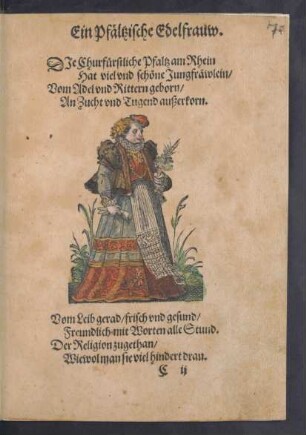 Ein Pfältzische Edelfrauw.
DIe Churfürstliche Pfaltz am Rhein
Hat viel vnd schöne Jungfräwlein/
Vom Adel vnd Rittern geborn/
An Zucht vnd Tugend außerkorn.
Vom Leib gerad/frisch vnd gesund/
Freundlich mit Worten alle Stund.
Der Religion zugethan/
Wiewol man sie viel hindert dran.
C ij